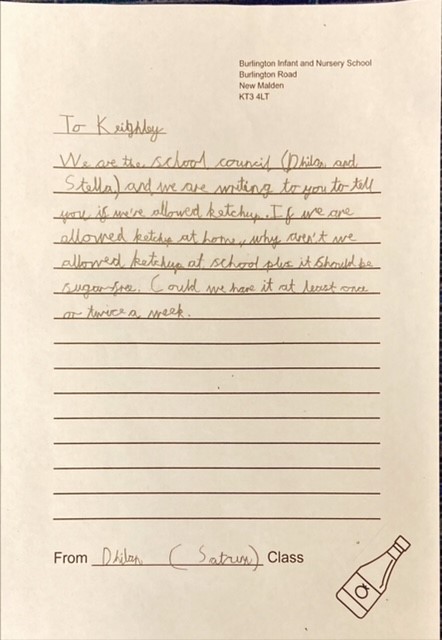 Burlington Infant and Nursery School
Burlington Road
New Malden
KT3 4LT
To Keighley
We are the school council (Dhilan and
Stella) and we are writing to you to tell
you if we're allowed ketchup. If we are
allowed ketchup at home, why aren't we
allowed ketchup at school plus it should be
sugar-free. Could we have it at least once
or twice a week.
From Dhilan (Saturn) Class